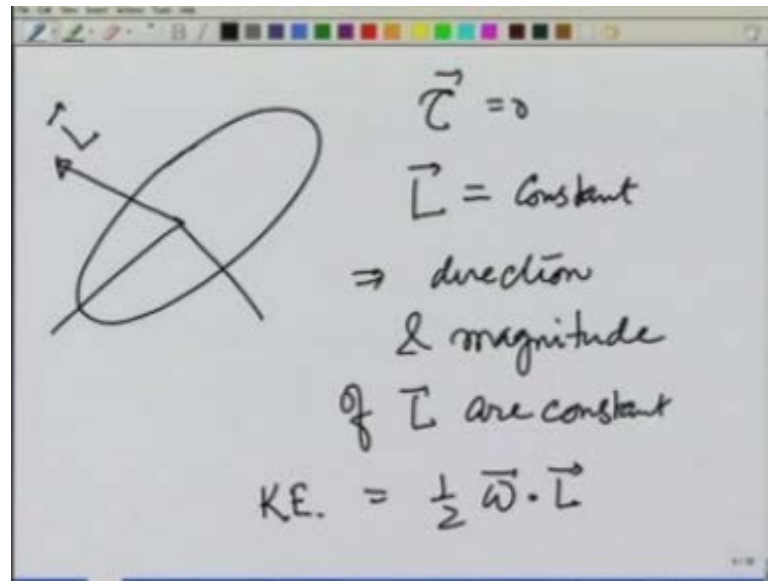 L⃗
τ⃗ = 0
L⃗ = Constant
⇒ direction
& magnitude
of L⃗ are constant
K.E. = ½ ω⃗ · L⃗